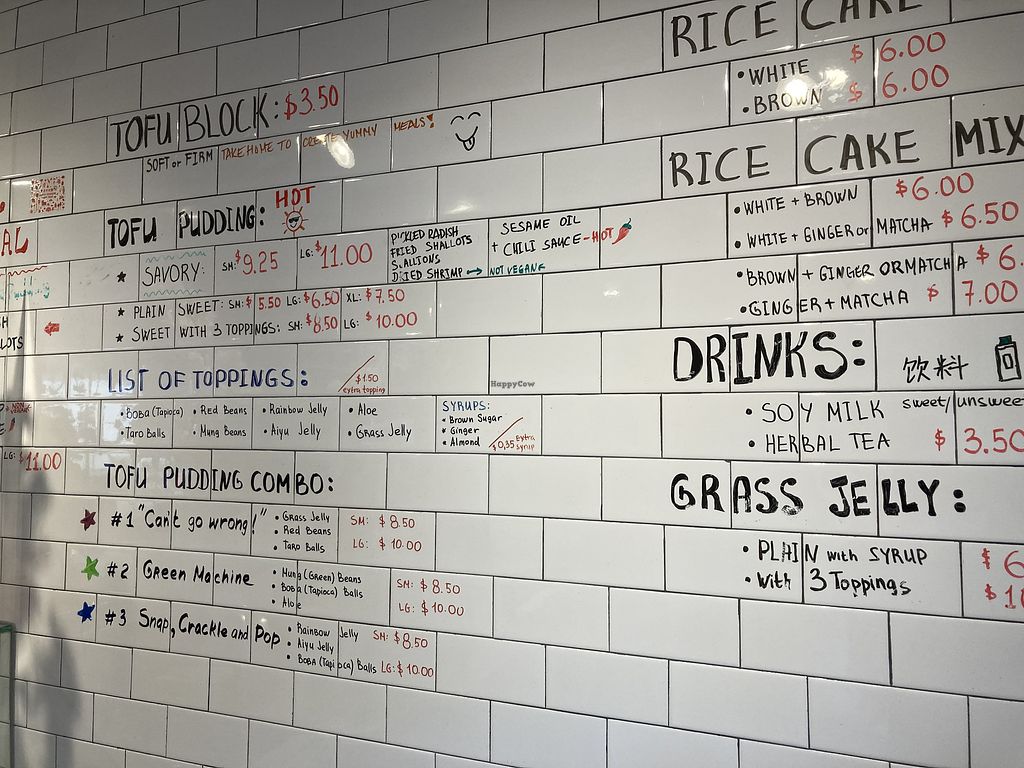 TOFU BLOCK: $3.50
SOFT or FIRM TAKE HOME TO CREATE YUMMY MEALS!
TOFU PUDDING: HOT
★ SAVORY: SM: $9.25 LG: $11.00
PICKLED RADISH
FRIED SHALLOTS
SCALLIONS
DRIED SHRIMP → NOT VEGAN
SESAME OIL
+ CHILI SAUCE - HOT
★ PLAIN SWEET: SM: $5.50 LG: $6.50 XL: $7.50
★ SWEET WITH 3 TOPPINGS: SM: $8.50 LG: $10.00
LIST OF TOPPINGS:
$1.50
extra topping
• Boba (Tapioca) • Red Beans • Rainbow Jelly • Aloe
• Taro Balls • Mung Beans • Aiyu Jelly • Grass Jelly
SYRUPS:
• Brown Sugar
• Ginger
• Almond
$0.35 extra syrup
TOFU PUDDING COMBO:
#1 "Can't go wrong!"
• Grass Jelly
• Red Beans
• Taro Balls
SM: $8.50
LG: $10.00
#2 Green Machine
• Mung (Green) Beans
• Boba (Tapioca) Balls
• Aloe
SM: $8.50
LG: $10.00
#3 Snap, Crackle and Pop
• Rainbow Jelly
• Aiyu Jelly
• Boba (Tapioca) Balls
SM: $8.50
LG: $10.00
AL
LOTS
LG: $11.00
HappyCow
RICE CAKE
• WHITE $6.00
• BROWN $6.00
RICE CAKE MIX
• WHITE + BROWN $6.00
• WHITE + GINGER or MATCHA $6.50
• BROWN + GINGER OR MATCHA $6.
• GINGER + MATCHA $7.00
DRINKS: 饮料
• SOY MILK sweet/unswee
• HERBAL TEA $3.50
GRASS JELLY:
• PLAIN with SYRUP $6
• with 3 Toppings $10